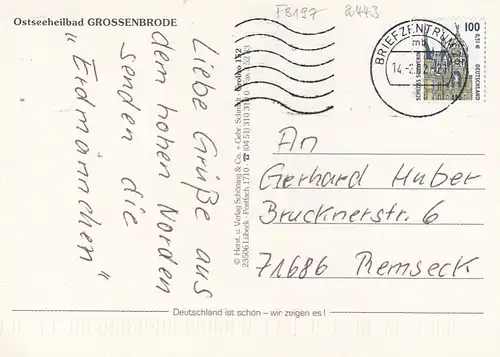 Ostseeheilbad GROSSENBRODE
F8197 2443
Liebe Grüße aus
dem hohen Norden
senden die
"Erdmännchen"
© Herst. u. Verlag Schöning & Co. + Gebr. Schmidt
23506 Lübeck - Postfach 1710 - ☎ (04 51) 310 31 0
BRIEFZENTRUM
mb
100
0,51 €
DEUTSCHLAND
An
Gerhard Huber
Brucknerstr. 6
71686 Remseck
Deutschland ist schön – wir zeigen es!